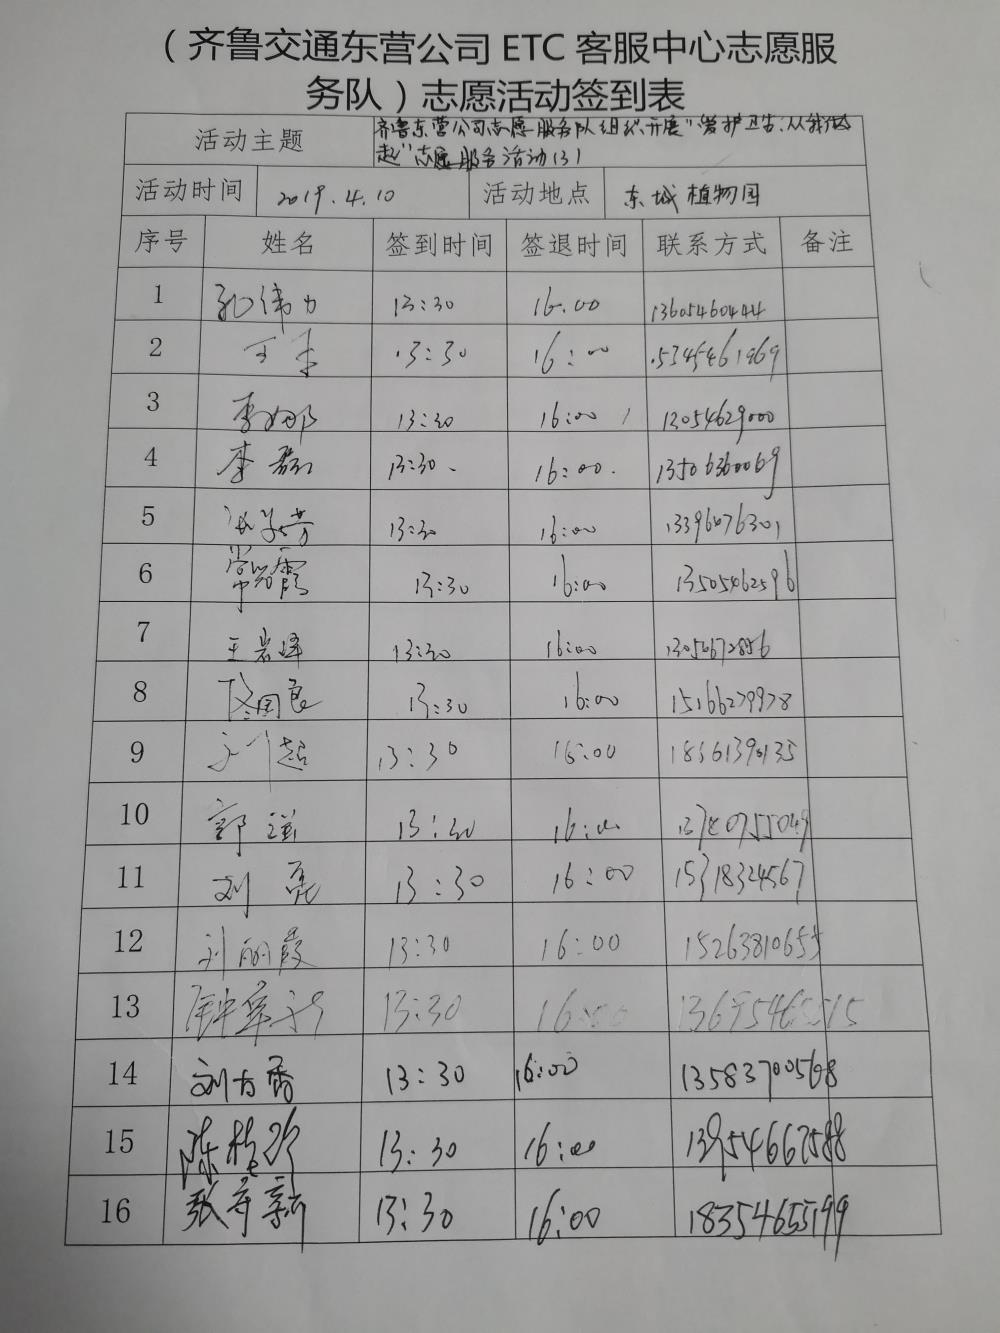 （齐鲁交通东营公司 ETC 客服中心志愿服
务队）志愿活动签到表
活动主题 齐鲁东营公司志愿服务队组织开展“爱护卫生、从我做
起”志愿服务活动(3)
活动时间 2019.4.10 活动地点 东城植物园
序号 姓名 签到时间 签退时间 联系方式 备注
1 孔伟力 13:30 16:00 13605460444
2 13:30 16:00
3 李娜 13:30 16:00 13054629000
4 李磊 13:30 16:00 13506360069
5 13:30 16:00
6 13:30 16:00 13505462596
7 王岩峰 13:30 16:00
8 国良 13:30 16:00 15166279978
9 刘超 13:30 16:00
10 郭 13:30 16:00
11 刘亮 13:30 16:00 15318324567
12 刘丽霞 13:30 16:00
13 13:30 16:00
14 刘方香 13:30 16:00 13583700568
15 陈 13:30 16:00 13954662588
16 张 新 13:30 16:00 18354655199